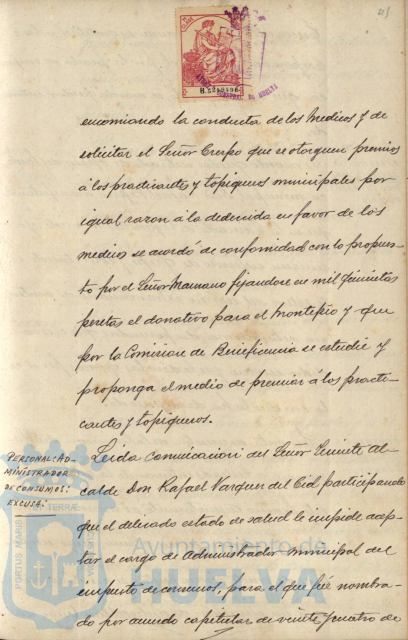 45
B.5249496
encomiando la conducta de los Medicos y de
solicitar el Señor Crespo que se otorguen premios
á los practicantes y topiqueros municipales por
igual razon á la deducida en favor de los
medicos se acordó de conformidad con lo propues-
to por el Señor Mamano fijandose en mil quinientas
pesetas el donativo para el Montepio y que
por la Comision de Beneficencia se estudie y
proponga el medio de premiar á los practi-
cantes y topiqueros.
PERSONAL: AD-
MINISTRADOR
DE CONSUMOS:
EXCUSA.
Leida comunicacion del Señor Teniente al-
calde Don Rafael Vazquez del Cid participando
que el delicado estado de salud le impide acep-
tar el cargo de Administrador municipal del
impuesto de consumos, para el que fué nombra-
do por acuerdo capitular de veinte y cuatro de
Ayuntamiento de
HUELVA
PORTUS MARIS
TERRAE